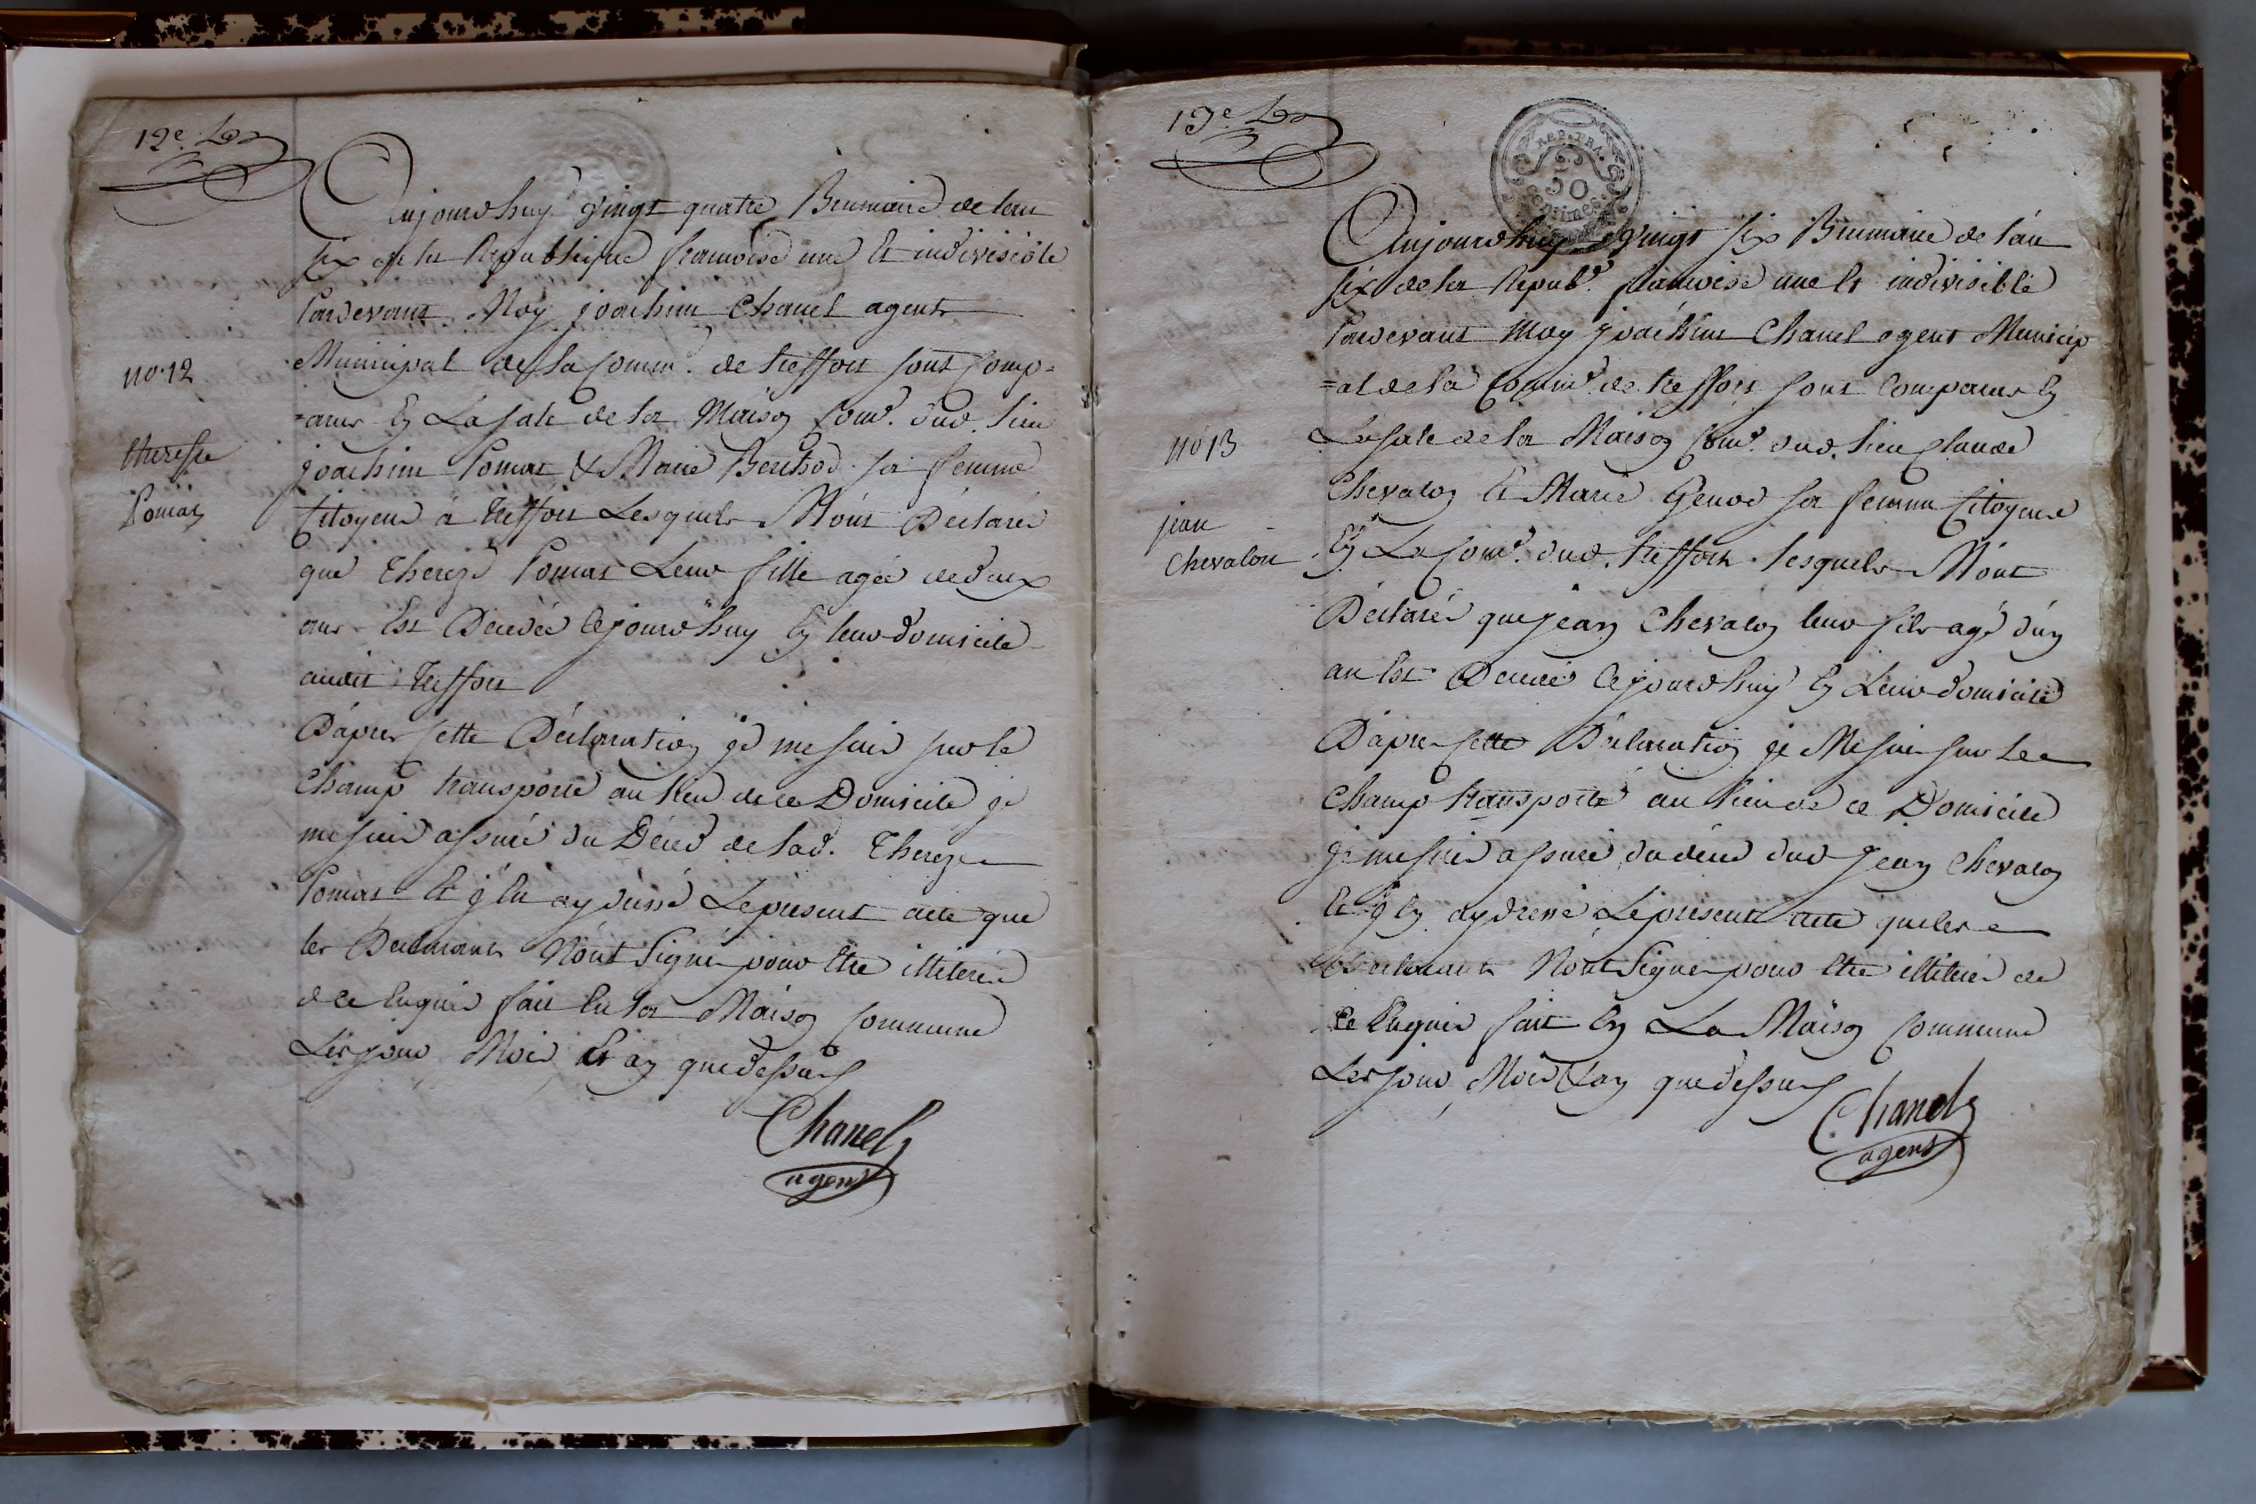 12e. Lo
Aujourdhuy vingt quatre Brumaire de lan
six de la Republique francoise une Et indivisible
Pardevant Moy joachim Chanel agent
no. 12
Municipal de la Comm.e de treffort sont Comp=
=arus En La sale de la Maison Com.e dud. lieu
Pomat
joachim Pomat & Marie Berthod sa femme
Citoyens à treffort Lesquels Mónt Déclarés
que Thereze Pomat Leur fille agée de deux
ans Est Décedée Cejourdhuy En leur domicile
audit treffort
Dápres Cette Déclaration je me suis sur le
Champ transporté au lieu de ce Domicile je
me suis assuré du Décès de lad. Thereze
Pomat Et j'En ay dressé Le present acte que
les Déclarants Nónt Signé pour Etre illiterés
de ce Enquis fait En la Maison Commune
Les jour Mois Et an que dessus
Chanel
agent
13e. Lo
REP. FRA.
50
Centimes
Aujourdhuy vingt six Brumaire de lán
six de la Repub.e francoise une Et indivisible
Pardevant Moy joachim Chanel agent Municip
=al de la Comm.e de treffort sont Comparus En
no 13
La sale de la Maison Com.e dud. lieu Claude
Chevalon Et Marie Genod sa femme Citoyens
jean
Chevalon
En La Com.e dud. treffort lesquels Mónt
Déclarés que jean Chevalon leur fils agé dún
an Est Décedé Cejourdhuy En Leur domicile
Dápres Cette Déclaration je Me suis sur Le
Champ transporté au lieu de ce Domicile
je me suis assuré du décès dud jean Chevalon
Et j'En ay dressé Le present acte que les
Déclarants Nónt Signé pour Etre illiterés de
ce Enquis fait En La Maison Commune
Les jour Mois & an que dessus
Chanel
agent